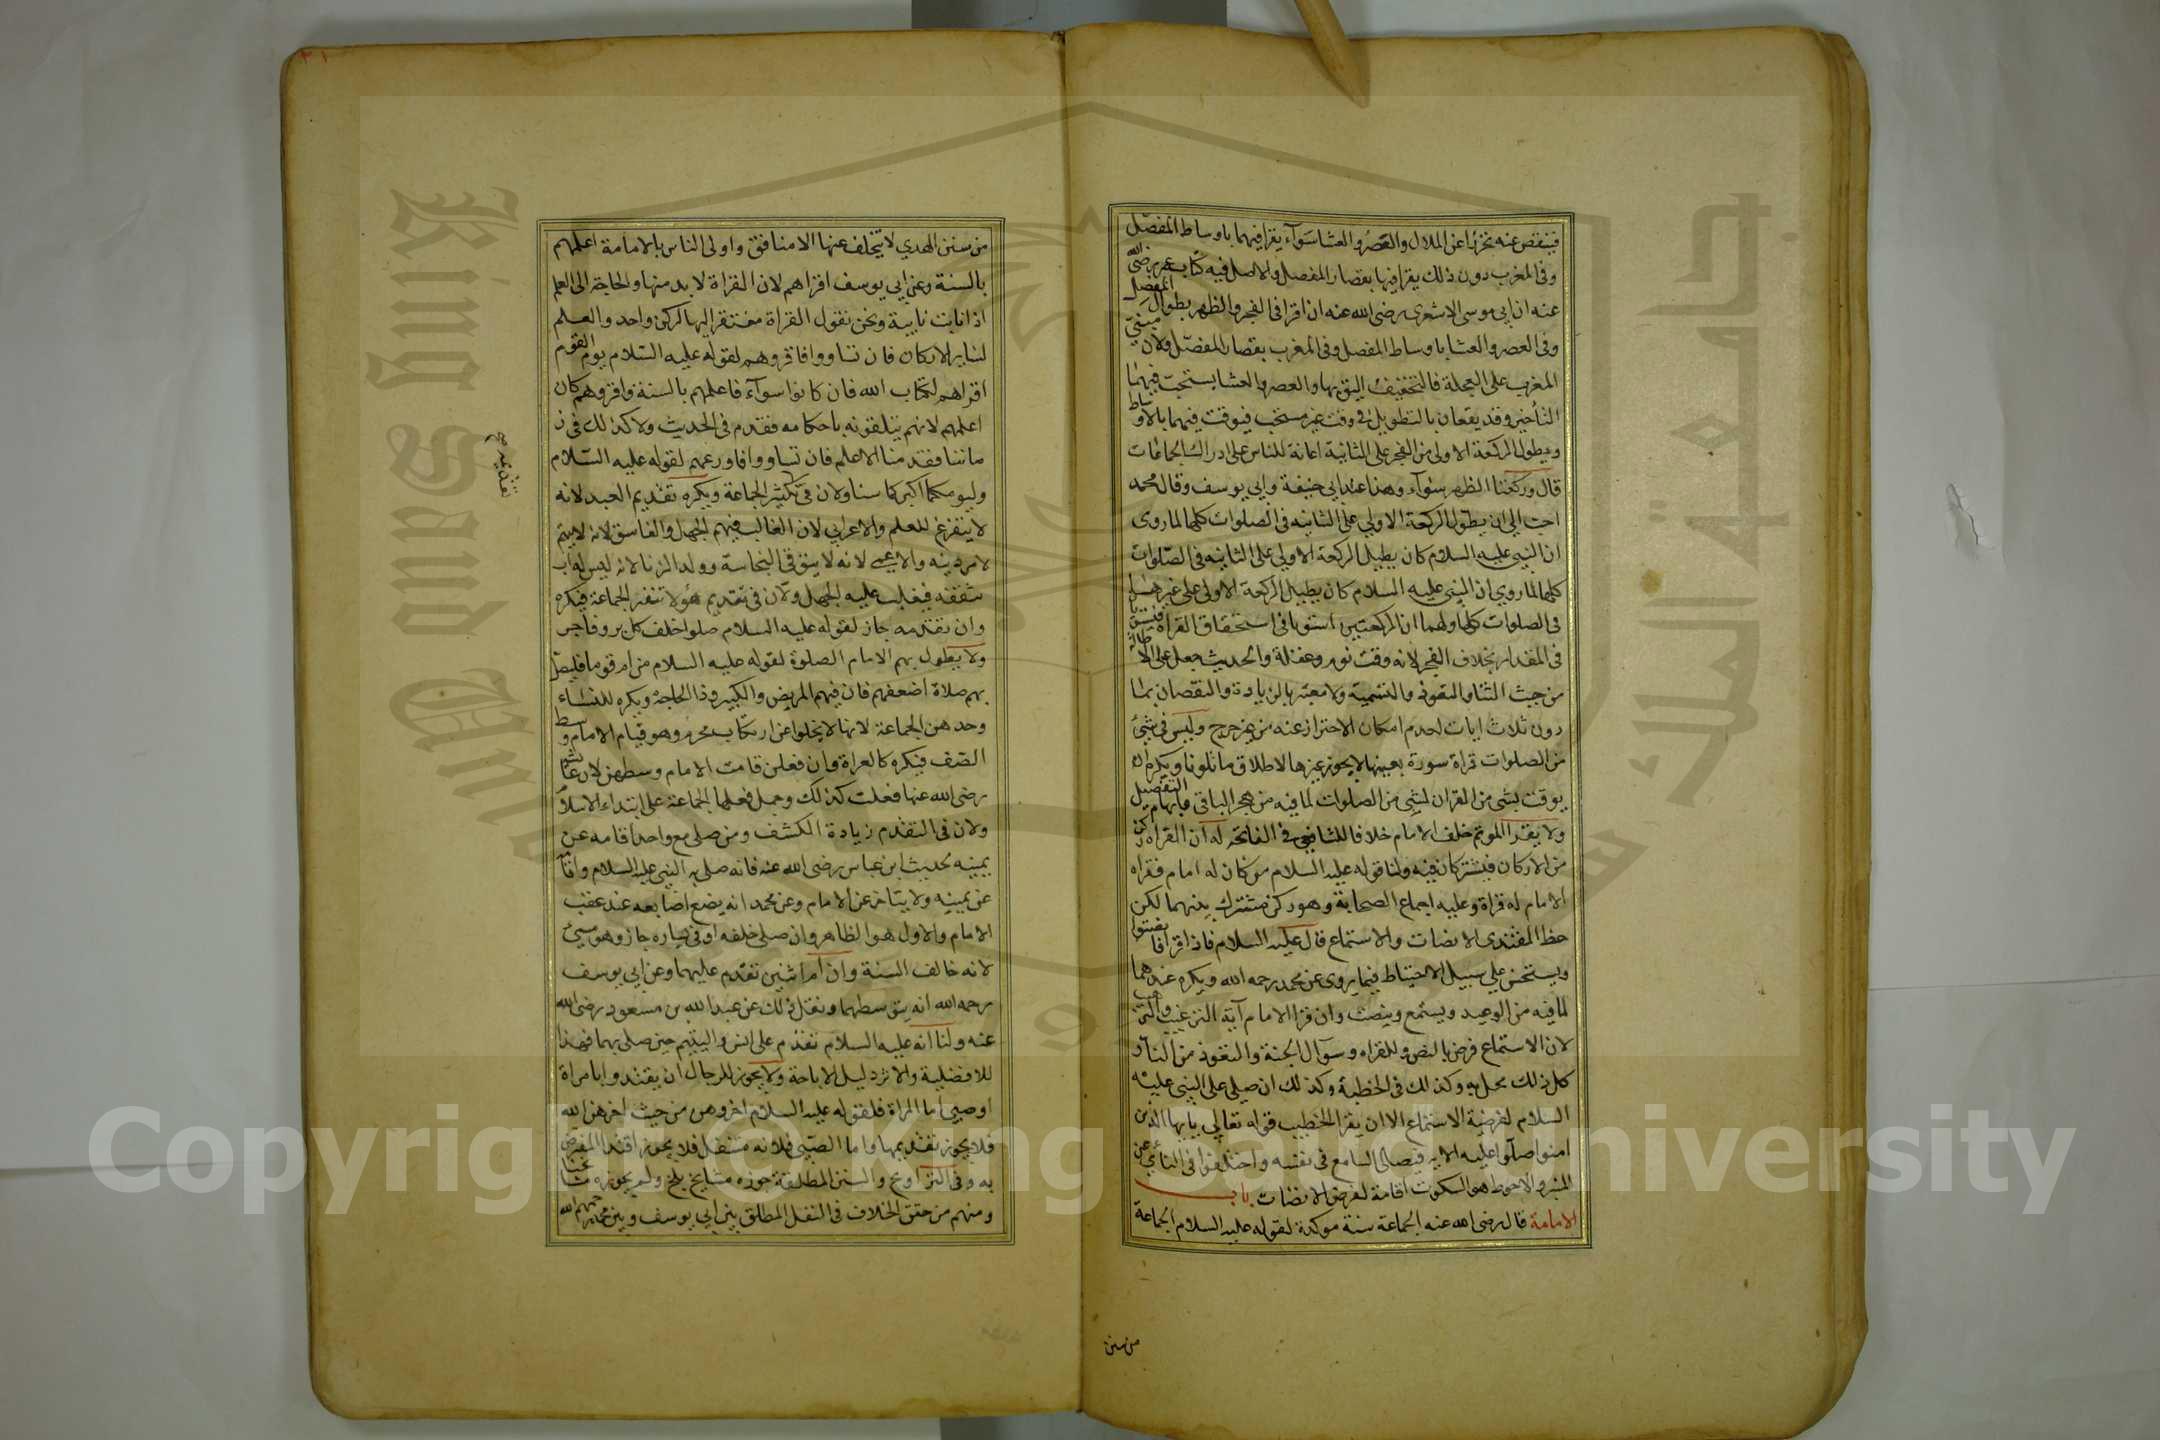 فينقص عنه تحرزا عن الملال والعصر والعشا سوآء يقرا فيهما باوساط المفصل
وفى المغرب دون ذلك يقرا فيها بقصار المفصل والاصل فيه كتاب عمر رضى الله
عنه ان ابى موسى الاشعرى رضى الله عنه ان اقرا فى الفجر والظهر بطوال المفصل
وفى العصر والعشا باوساط المفصل وفى المغرب بقصار المفصل ولان مبنى
المغرب على العجلة فالتخفيف اليق بها والعصر والعشا يستحب فيهما
التأخير وقد يقعان بالتطويل فى وقت غير مستحب فيوقت فيهما بالاوساط
ويطول الركعة الاولى من الفجر على الثانية اعانة للناس على ادراك الجماعات
قال وركعتا الظهر سوآء وهذا عند ابى حنيفة وابى يوسف وقال محمد
احب الى ان يطول الركعة الاولى على الثانيه فى الصلوات كلها لما روى
ان النبى عليه السلام كان يطيل الركعة الاولى على الثانيه فى الصلوات
كلها لما روي ان النبى عليه السلام كان يطيل الركعة الاولى على غيرها
فى الصلوات كلها ولهما ان الركعتين استويا فى استحقاق القراة فيستويا
فى المقدار بخلاف الفجر لانه وقت نوم وغفلة والحديث جعل على الاطالة
من حيث الثنا والتعوذ والتسمية ولا معتبر بالزيادة والنقصان بما
دون ثلاث ايات لعدم امكان الاحتراز عنه من غير حرج وليس فى شئ
من الصلوات قراة سورة بعينها لا يجوز غيرها لاطلاق ما تلونا ويكره ان
يوقت بشى من القران لشى من الصلوات لما فيه من هجر الباقى وايهام التفضيل
ولا يقرا الموتم خلف الامام خلافا للشافعى فى الفاتحه له ان القراه ركن
من الاركان فيشتركان فيه ولنا قوله عليه السلام من كان له امام فقراه
الامام له قراة وعليه اجماع الصحابة وهو ركن مشترك بينهما لكن
حظ المقتدى الانصات والاستماع قال عليه السلام فاذا قرا فانصتوا
ويستحسن على سبيل الاحتياط فيما يروى عن محمد رحمه الله ويكره عندهما
لما فيه من الوعيد ويستمع وينصت وان قرا الامام آية الترغيب والترهيب
لان الاستماع فرض بالنص والقراه وسوآل الجنة والتعوذ من النار و
كل ذلك مخل به وكذلك فى الخطبة وكذلك ان صلى على النبى عليه
السلام لفرضية الاستماع الا ان يقرا الخطيب قوله تعالى يايها الذين
امنوا صلوا عليه الايه فيصلى السامع فى نفسه واختلفوا فى النائى عن
المنبر والاحوط هو السكوت اقامة لفرض الانصات باب
الامامة قال رضى الله عنه الجماعة سنة موكدة لقوله عليه السلام الجماعة
من سنن
من سنن الهدي لا يتخلف عنها الا منافق واولى الناس بالامامة اعلمهم
بالسنة وعن ابي يوسف اقراهم لان القراة لا بد منها والحاجة الى العلم
اذا نابت نايبة ونحن نقول القراة مفتقر اليها لركن واحد والعلم
لساير الاركان فان تساووا فاقروهم لقوله عليه السلام يوم القوم
اقراهم لكتاب الله فان كانوا سوآء فاعلمهم بالسنة واقروهم كان
اعلمهم لانهم يتلقونه باحكامه فقدم فى الحديث ولا كذلك فى ز
ماننا فقدمنا الاعلم فان تساووا فاورعهم لقوله عليه السلام
وليومكما اكبركما سنا ولان فى تكثير الجماعة ويكره تقديم العبد لانه
تقديمه صح
لا يتفرغ للعلم والاعرابي لان الغالب فيهم الجهل والفاسق لانه لا يهتم
لامر دينه والاعمى لانه لا يتوقى النجاسة وولد الزنا لانه ليس له اب
يثقفه فيغلب عليه الجهل ولان فى تقديم هؤلا تنفير الجماعة فيكره
وان تقدمه جاز لقوله عليه السلام صلوا خلف كل بر وفاجر
ولا يطول بهم الامام الصلوة لقوله عليه السلام من ام قوما فليصل
بهم صلاة اضعفهم فان فيهم المريض والكبير وذا الحاجة ويكره للنساء
وحدهن الجماعة لانها لا يخلوا عن ارتكاب محرم وهو قيام الامام وسط
الصف فيكره كالعراة وان فعلن قامت الامام وسطهن لان عائشه
رضى الله عنها فعلت كذلك وحمل فعلها الجماعة على ابتداء الاسلام
ولان فى التقدم زيادة الكشف ومن صلى مع واحد اقامه عن
يمينه لحديث ابن عباس رضى الله عنه فانه صلى به النبى عليه السلام واقامه
عن يمينه ولا يتاخر عن الامام وعن محمد انه يضع اصابعه عند عقب
الامام والاول هو الظاهر وان صلى خلفه او فى يساره جاز وهو مسئ
لانه خالف السنة وان ام اثنين تقدم عليهما وعن ابى يوسف
رحمه الله انه يتوسطهما ونقل ذلك عن عبد الله بن مسعود رضى الله
عنه ولنا انه عليه السلام تقدم على انس واليتيم حين صلى بهما فهذا
للافضلية والاثر دليل الاباحة ولا يجوز للرجال ان يقتدوا بامراة
اوصبى اما المراة فلقوله عليه السلام اخروهن من حيث اخرهن الله
فلا يجوز تقديمها واما الصبى فلانه متنفل فلا يجوز اقتدا المفترض
به وفى التراويح والسنن المطلقة جوزه مشايخ بلخ ولم يجوزه مشايخنا
ومنهم من حقق الخلاف فى النفل المطلق بين ابى يوسف وبين محمد رحمهم الله
King Saud University
جامعة الملك سعود
Copyright © King Saud University